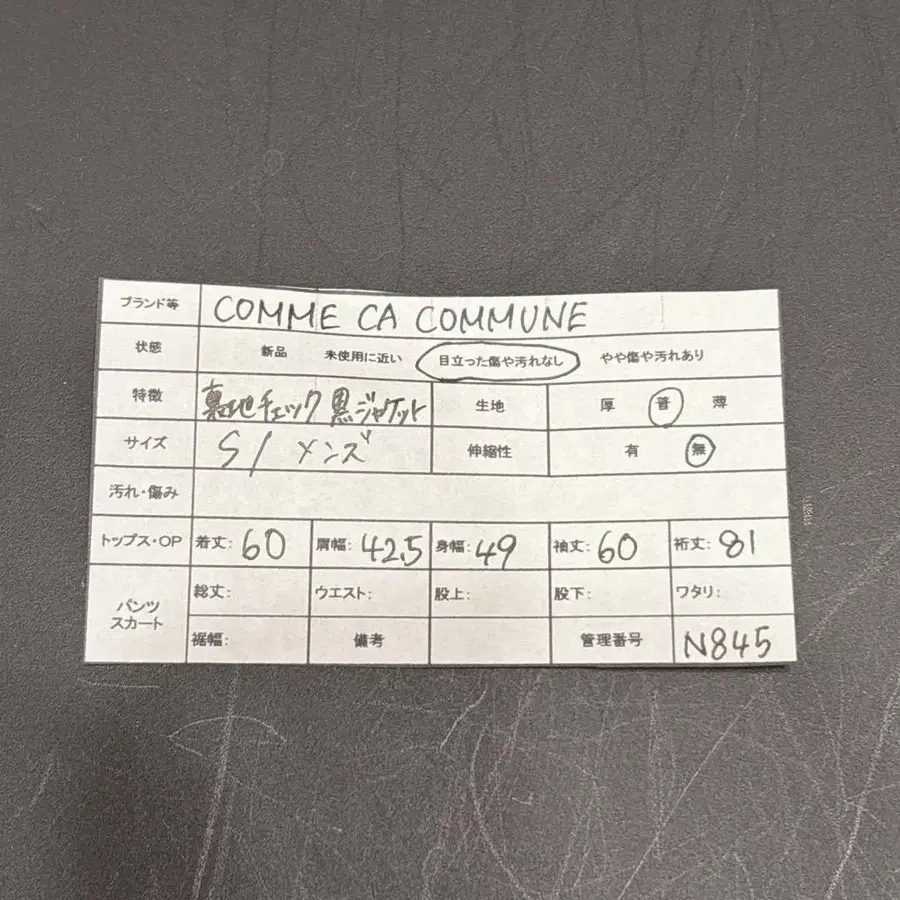 ブランド等 COMME CA COMMUNE
状態 新品 未使用に近い 目立った傷や汚れなし やや傷や汚れあり
特徴 裏地チェック 黒ジャケット 生地 厚 普 薄
サイズ S/メンズ 伸縮性 有 無
汚れ・傷み
トップス・OP 着丈: 60 肩幅: 42.5 身幅: 49 袖丈: 60 裄丈: 81
パンツ スカート 総丈: ウエスト: 股上: 股下: ワタリ:
裾幅: 備考 管理番号 N845